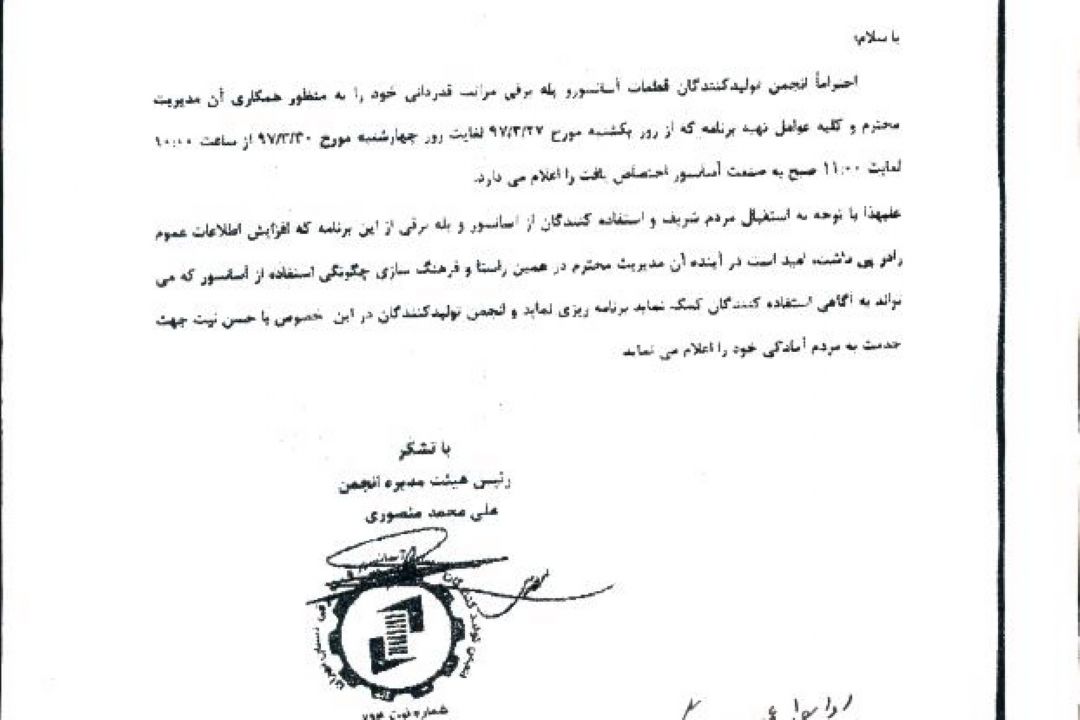 با سلام؛
احتراماً انجمن تولیدکنندگان قطعات آسانسورو پله برقی مراتب قدردانی خود را به منظور همکاری آن مدیریت
محترم و کلیه عوامل تهیه برنامه که از روز یکشنبه مورخ ۹۷/۳/۲۷ لغایت روز چهارشنبه مورخ ۹۷/۳/۳۰ از ساعت ۱۰:۰۰
لغایت ۱۱:۰۰ صبح به صنعت آسانسور اختصاص یافت را اعلام می دارد.
علیهذا با توجه به استقبال مردم شریف و استفاده کنندگان از آسانسور و پله برقی از این برنامه که افزایش اطلاعات عموم
رادر پی داشت، امید است در آینده آن مدیریت محترم در همین راستا و فرهنگ سازی چگونگی استفاده از آسانسور که می
تواند به آگاهی استفاده کنندگان کمک نماید برنامه ریزی نماید و انجمن تولیدکنندگان در این خصوص با حسن نیت جهت
خدمت به مردم آمادگی خود را اعلام می نماید.
با تشکر
رئیس هیئت مدیره انجمن
علی محمد منصوری
شماره ثبت ۷۹۴